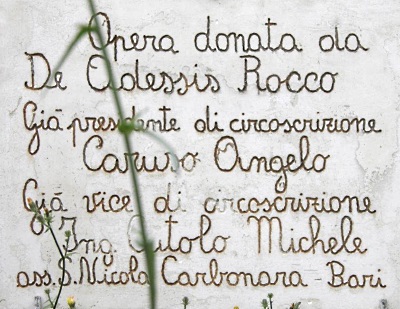 Opera donata da
De Adessis Rocco
Già presidente di circoscrizione
Caruso Angelo
Già vice di circoscrizione
Ing. Cutolo Michele
ass. S. Nicola Carbonara - Bari